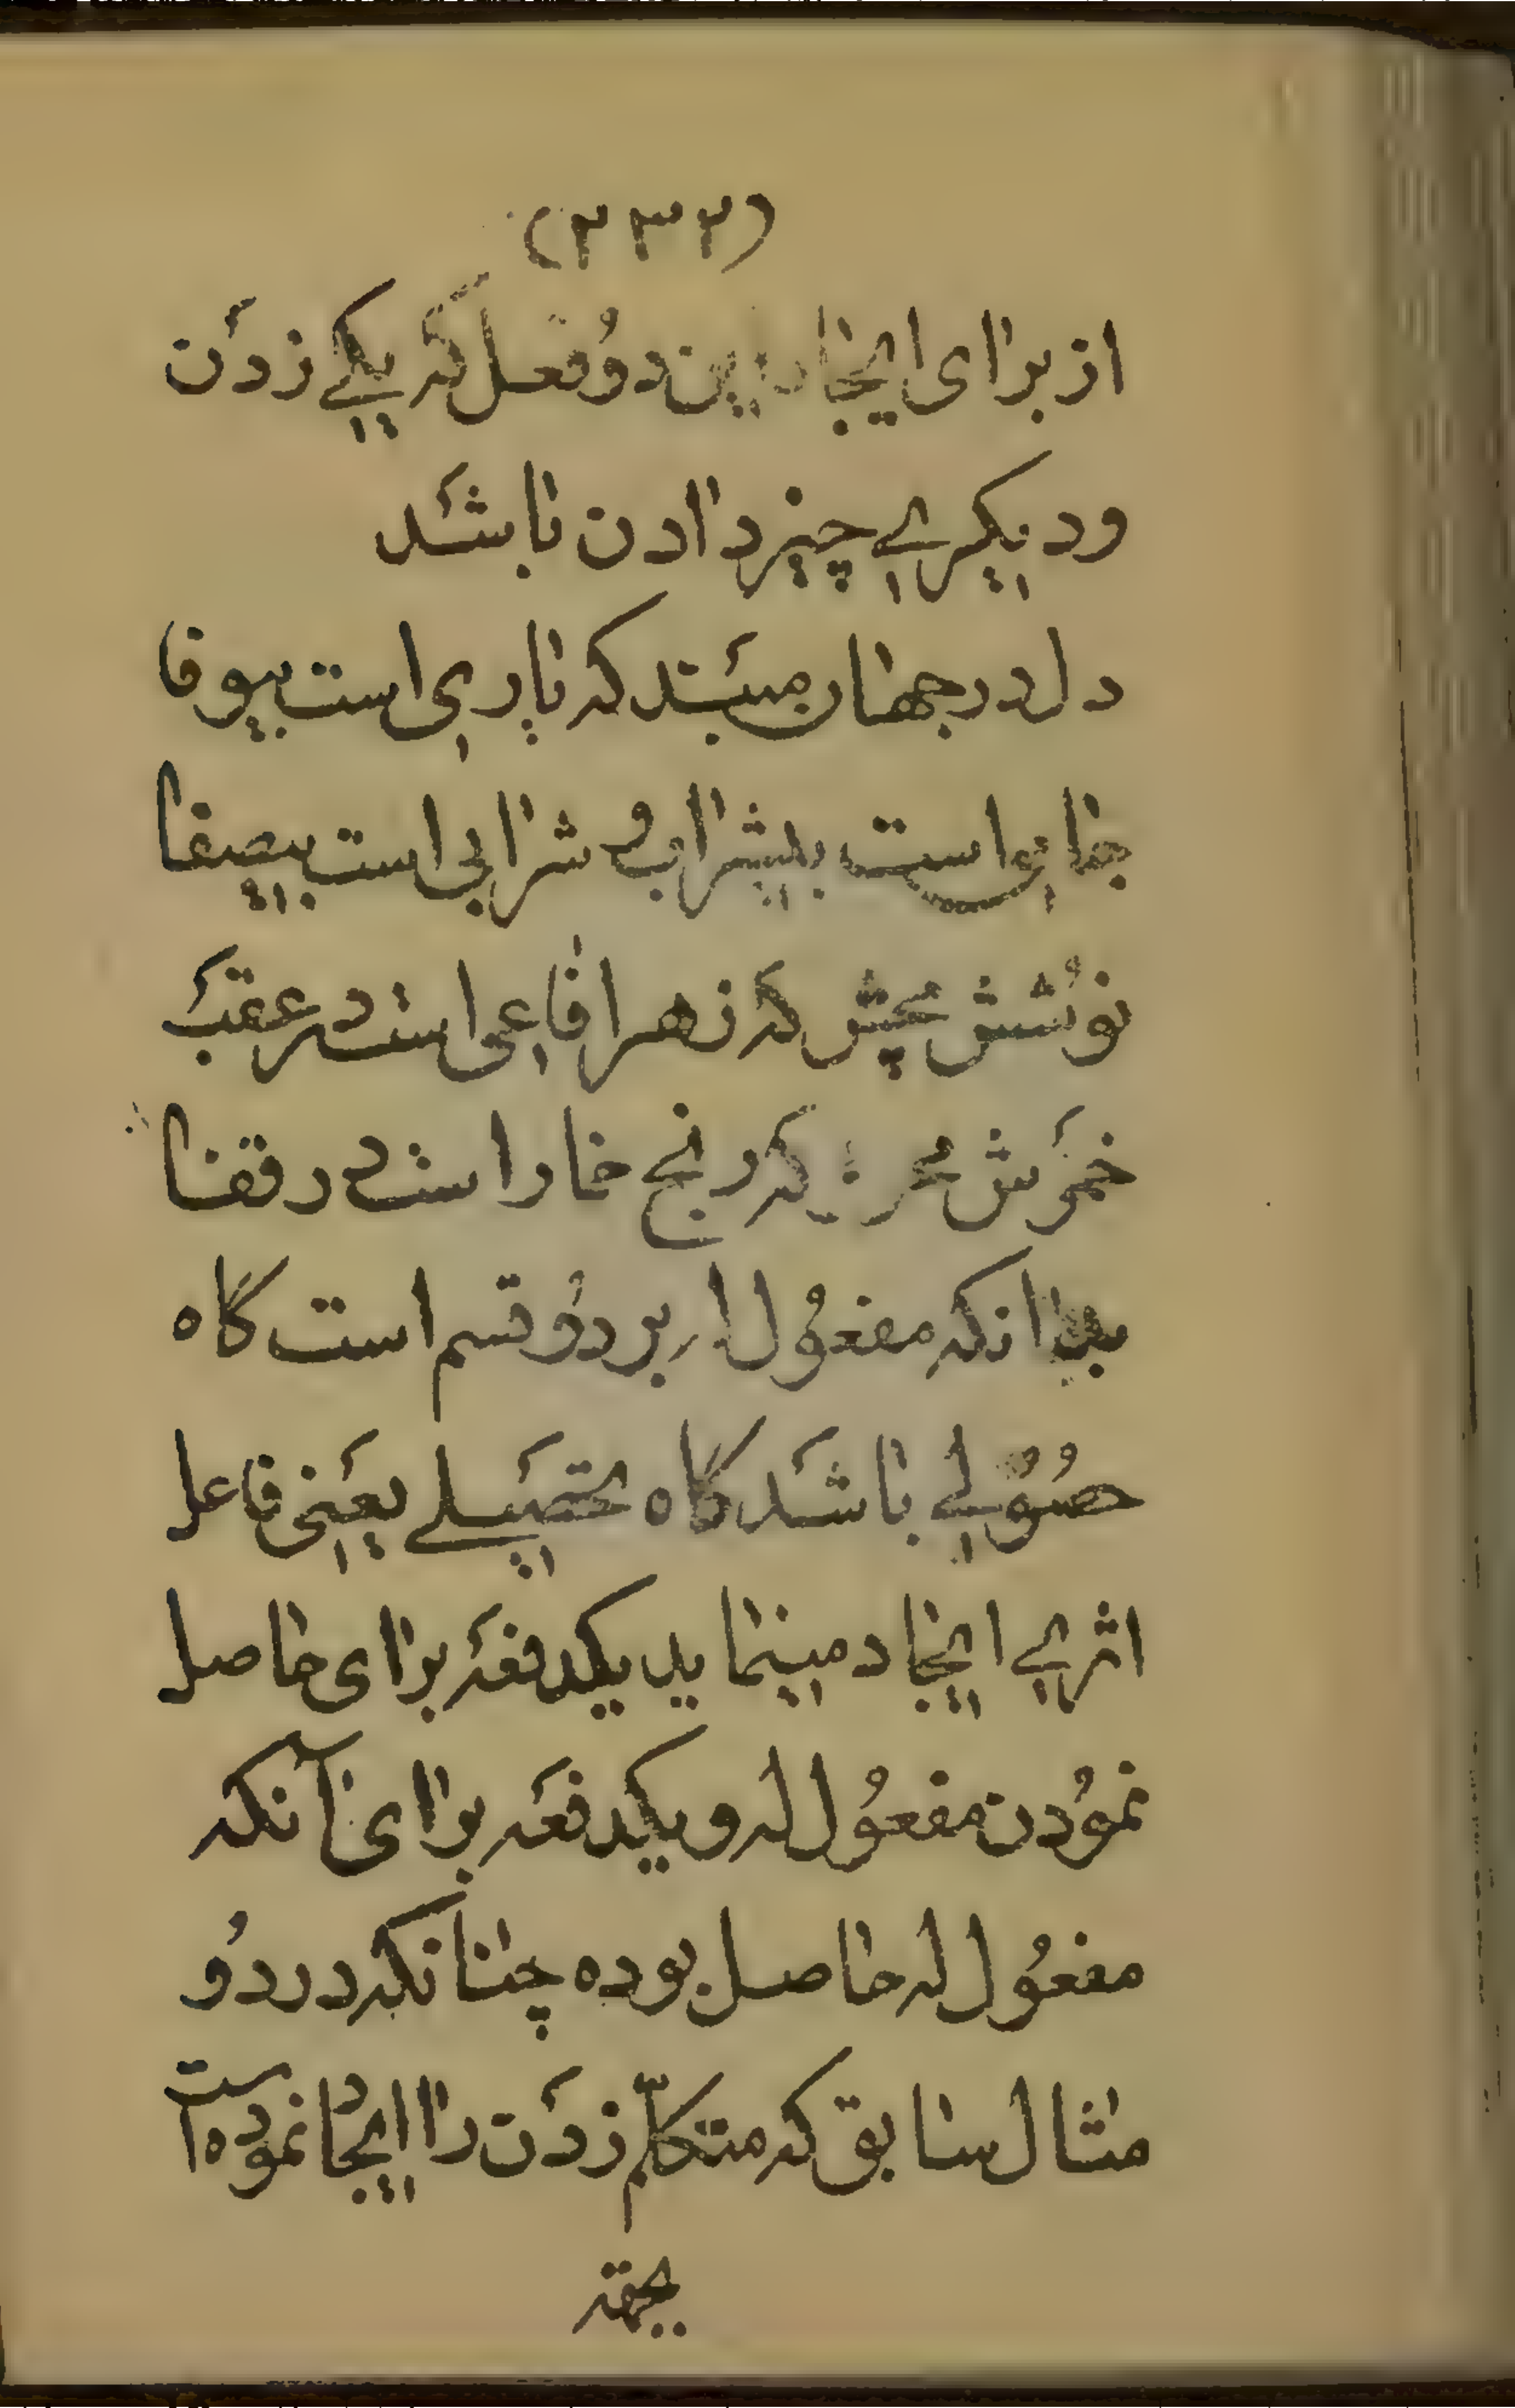 (۲۳۲)
از برای ایجاد این دو فعل که یکی زدن
و دیگری چیز دادن باشد
دل در جهان مبند که یاری است بیوفا
جامی است بیشراب و شرابی است بیصفا
نوشش مچش که زهر افاعی است در عقب
خمرش مخور که رنج خمار است در قفا
بدانکه مفعول له بر دو قسم است گاه
حصولی باشد گاه تحصیلی یعنی فاعل
اثری ایجاد مینماید یکدفعه برای حاصل
نمودن مفعول له و یکدفعه برای آنکه
مفعول له حاصل بوده چنانکه در دو
مثال سابق که متکلّم زدن را ایجاد نموده است
بجهة